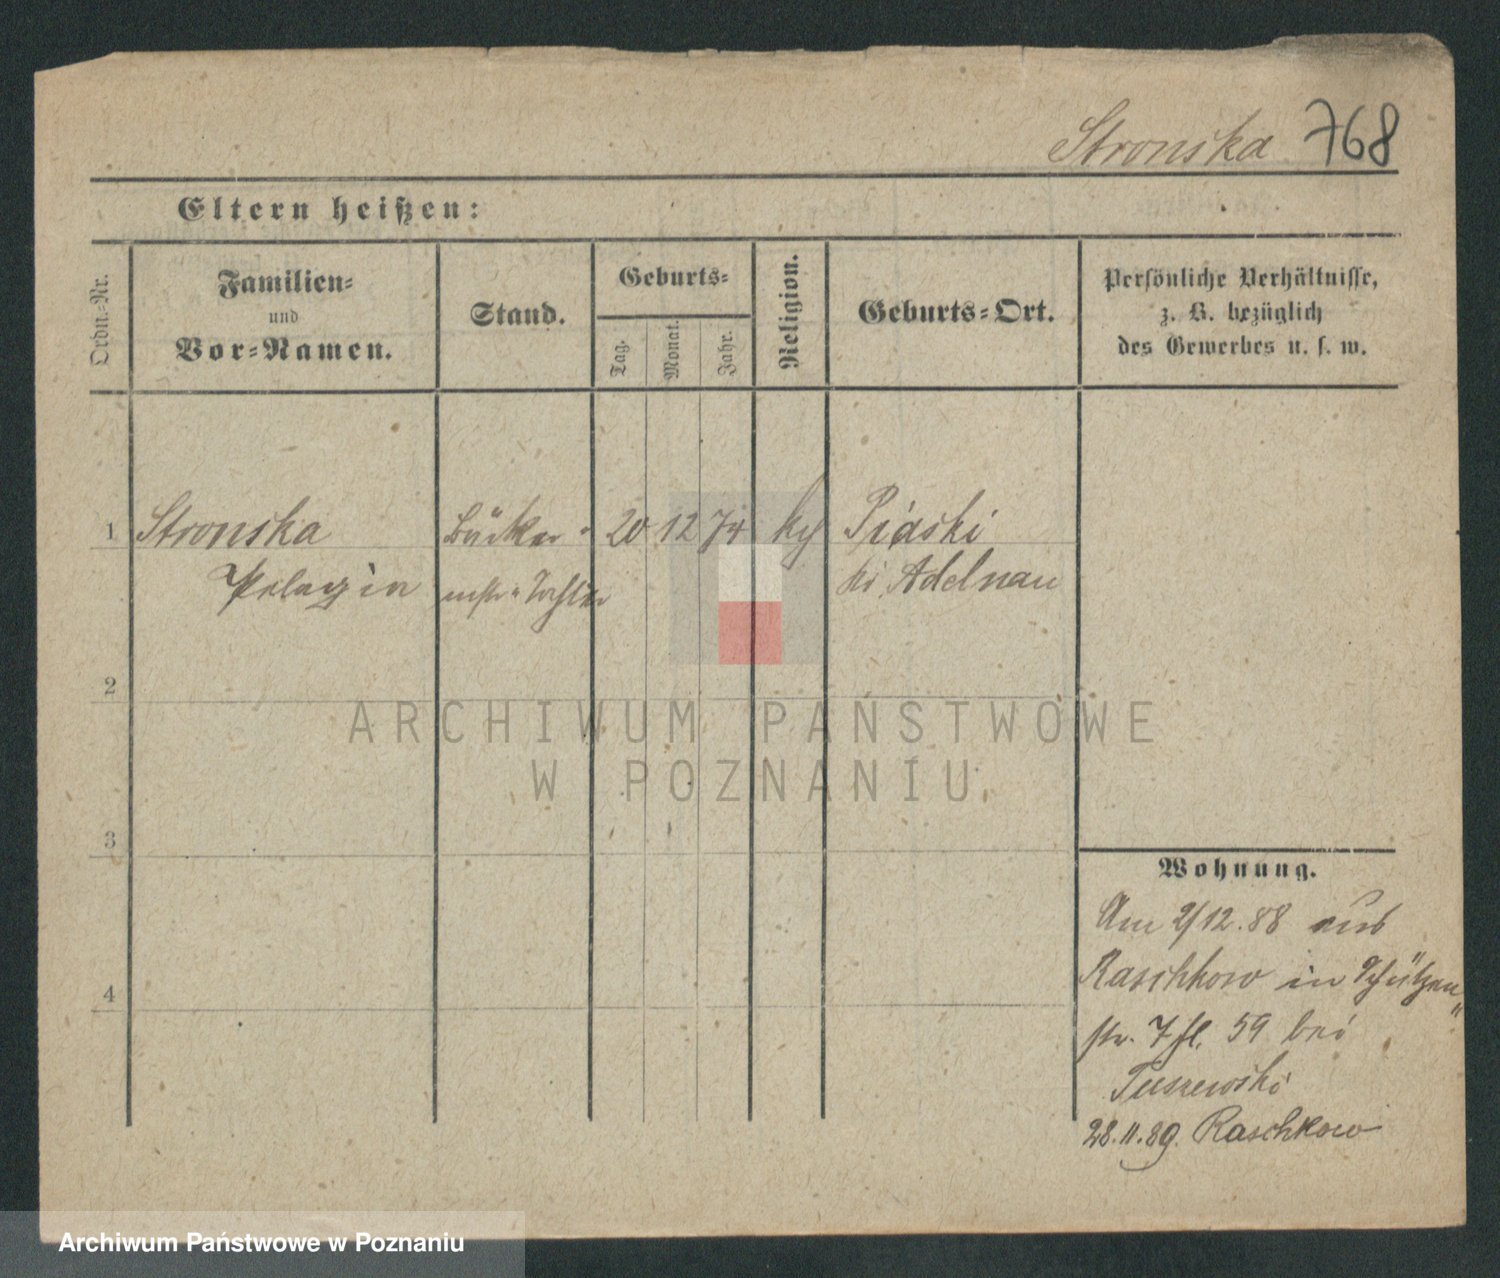 Stronska 768
Eltern heißen:
Ordn.-Nr.
Familien-
und
Vor-Namen.
Stand.
Geburts-
Tag.
Monat.
Jahr.
Religion.
Geburts-Ort.
Persönliche Verhältnisse,
z. B. bezüglich
des Gewerbes u. s. w.
1 Stronska Bäcker- 20 12 74 kth Piaski
Pelagia mstr-Tochter Kr. Adelnau
2
3
4
Wohnung.
Am 2/12.88 aus
Raschkow in Schützen-
str. 7 fl. 59 bei
Tuszewski
28.11.89. Raschkow
ARCHIWUM PAŃSTWOWE
W POZNANIU
Archiwum Państwowe w Poznaniu